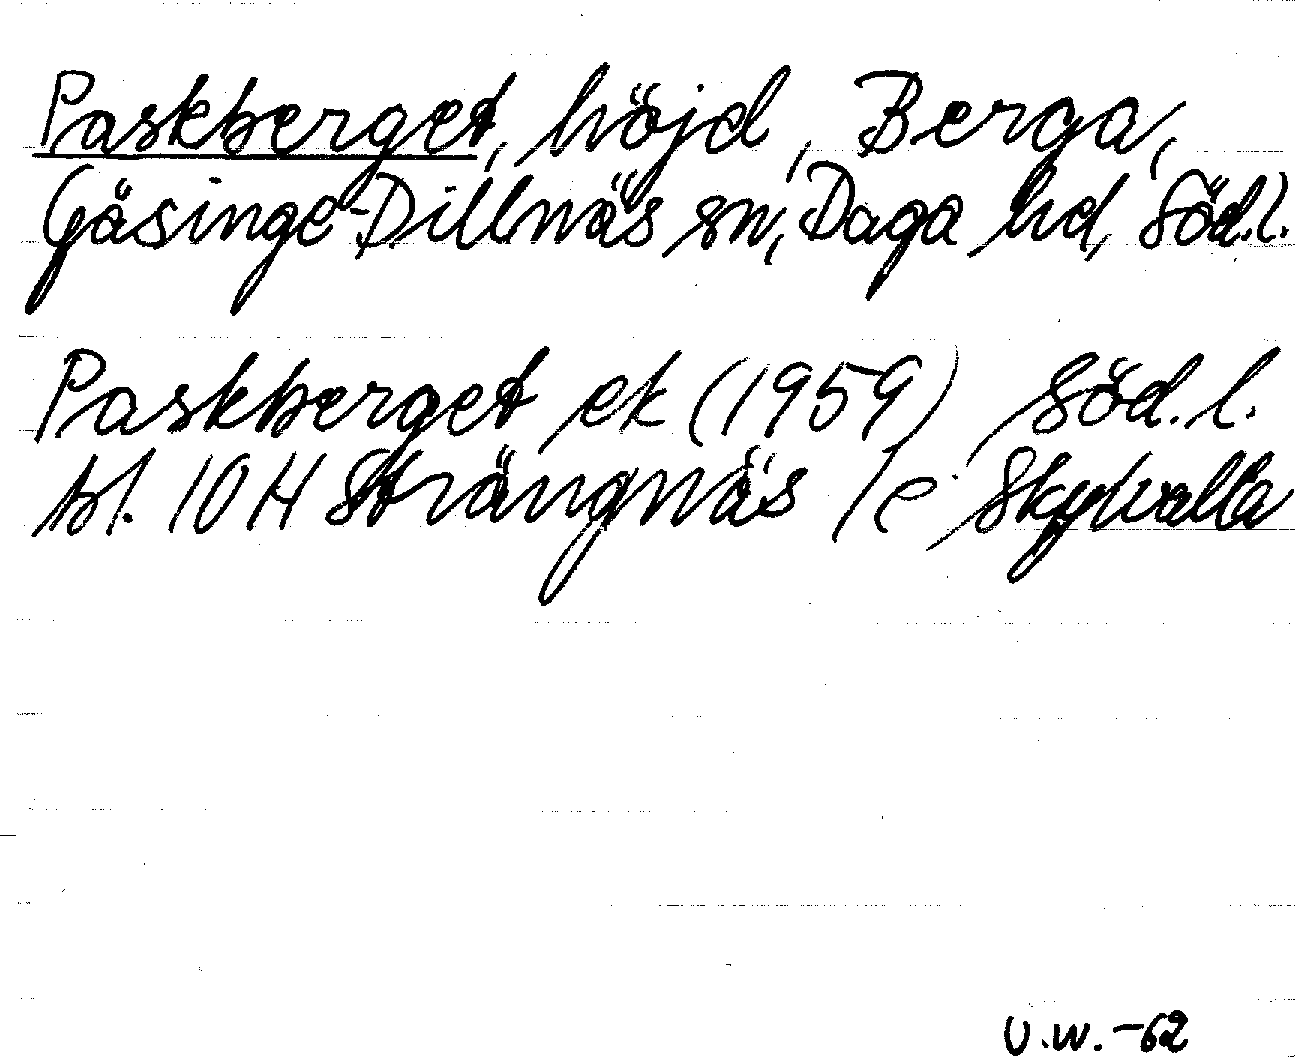 Paskberget, höjd, Berga,
Gåsinge-Dillnäs sn, Daga hd, Söd.l.
Paskberget ek (1959) Söd.l.
bl. 10 H Strängnäs /e Skyvalla
U.W. -62